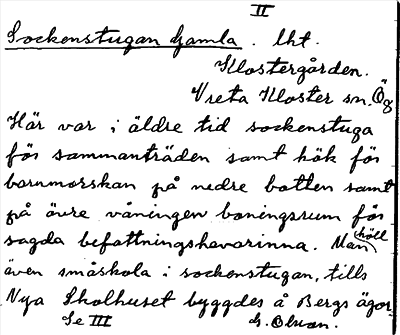 II
Sockenstugan Gamla. lht.
Klostergården.
Vreta Kloster sn. Ög
Här var i äldre tid sockenstuga
för sammanträden samt kök för
barnmorskan på nedre botten samt
på övre våningen boningsrum för
sagda befattningshavarinna. Man höll
även småskola i sockenstugan, tills
Nya Skolhuset byggdes å Bergs ägor.
Se III G. Olson.